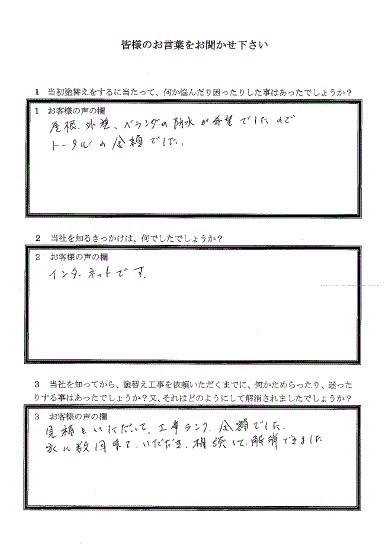 皆様のお言葉をお聞かせ下さい
1 当初塗替えをするに当たって、何か悩んだり困ったりした事はあったでしょうか?
1 お客様の声の欄
屋根、外壁、ベランダの防水が希望でしたので
トータルの金額でした。
2 当社を知るきっかけは、何でしたでしょうか?
2 お客様の声の欄
インターネットです
3 当社を知ってから、塗替え工事を依頼いただくまでに、何かためらったり、迷った
りする事はあったでしょうか?又、それはどのようにして解消されましたでしょうか?
3 お客様の声の欄
見積をいただいて、工事ランク、金額でした。
家に数回来ていただき、相談して解消できました